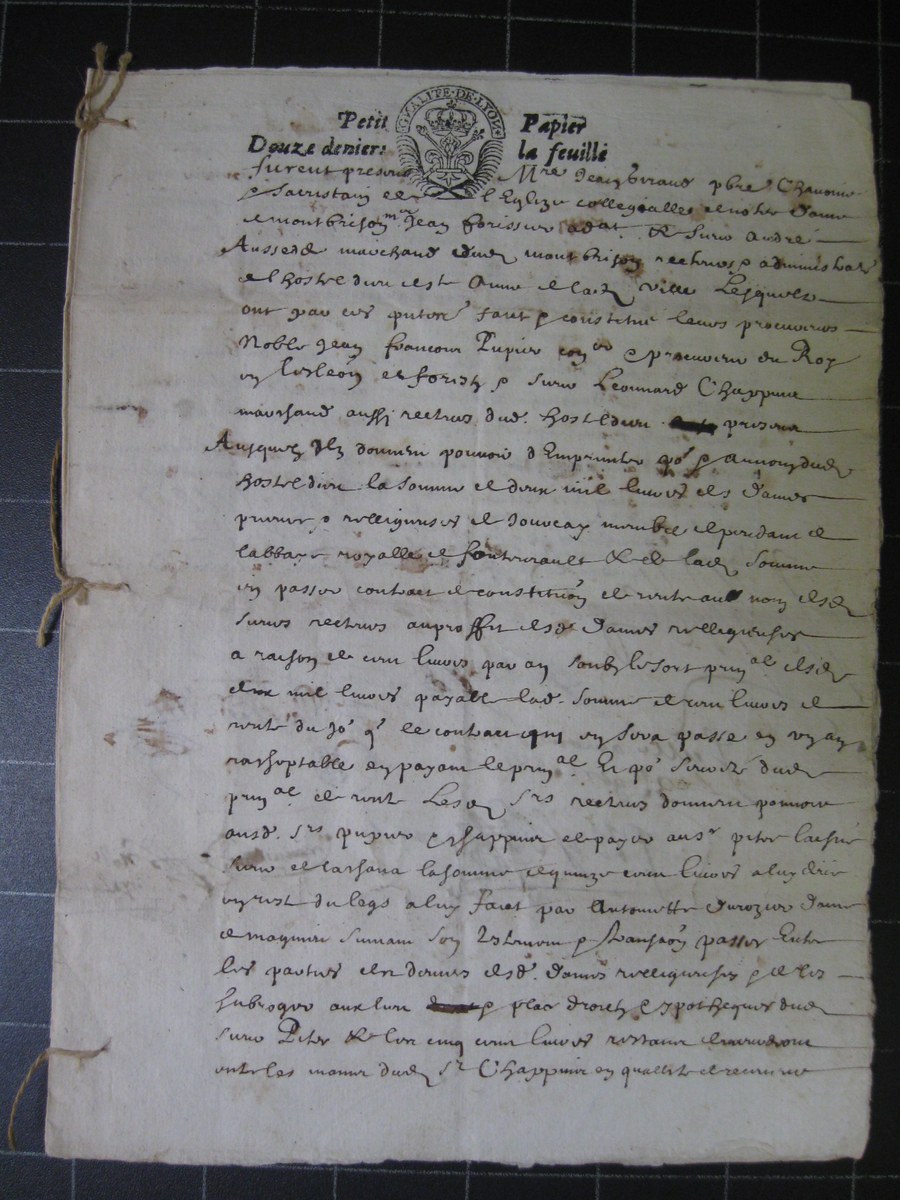 GNALITE·DE·LYON
Petit Papier
Douze deniers la feuille
furent presens Mre Jean pbre Chanoine
& Sacristain de l'Eglize collegialle de nostre dame
de montbrison mre Jean forissier advat & sieur André
Aussedde marchand dud montbrison recteurs & administrat
de lhostel dieu ste Anne de lad ville Lesquels
ont par ces pntes faict & constitué leurs procureurs
Noble Jean francois Pupier coner & procureur du Roy
en & sieur Leonnard Chappuis
marchand aussi recteur dud. hostel dieu presens
Ausquelz Ilz donnent pouvoir d'Emprunter po & au nom dud
hostel dieu la somme de deux mil livres des dames
prieure & relligieuses de Jourcey membre dependant de
labbaye royalle de fontevrault & de lad somme
en passer contract de constituon de rente au nom desd
sieurs recteurs au proffit desd dames relligieuses
a raison de cent livres par an soubz le sort prinal desd
deux mil livres payable lad. somme de cent livres de
rente du jo q le contract qui en sera passé en un an
racheptable en payant le prinal Et po seureté dud
prinal de rente Lesd srs recteurs donnent pouvoir
ausd. srs pupier & Chappuis de payer au sr
sieur de la somme de quinze cent livres a luy deue
en reste du legs a luy faict par Antoinette Durozier dame
de magnieu suivant son testament & transaon passée Entre
les parties des deniers desd. dames relligieuses & de les
subroger au lieu & place droictz & ypotheques dud
sieur & les cinq cent livres restant
entre les mains dud sr Chappuis en quallité de receveur